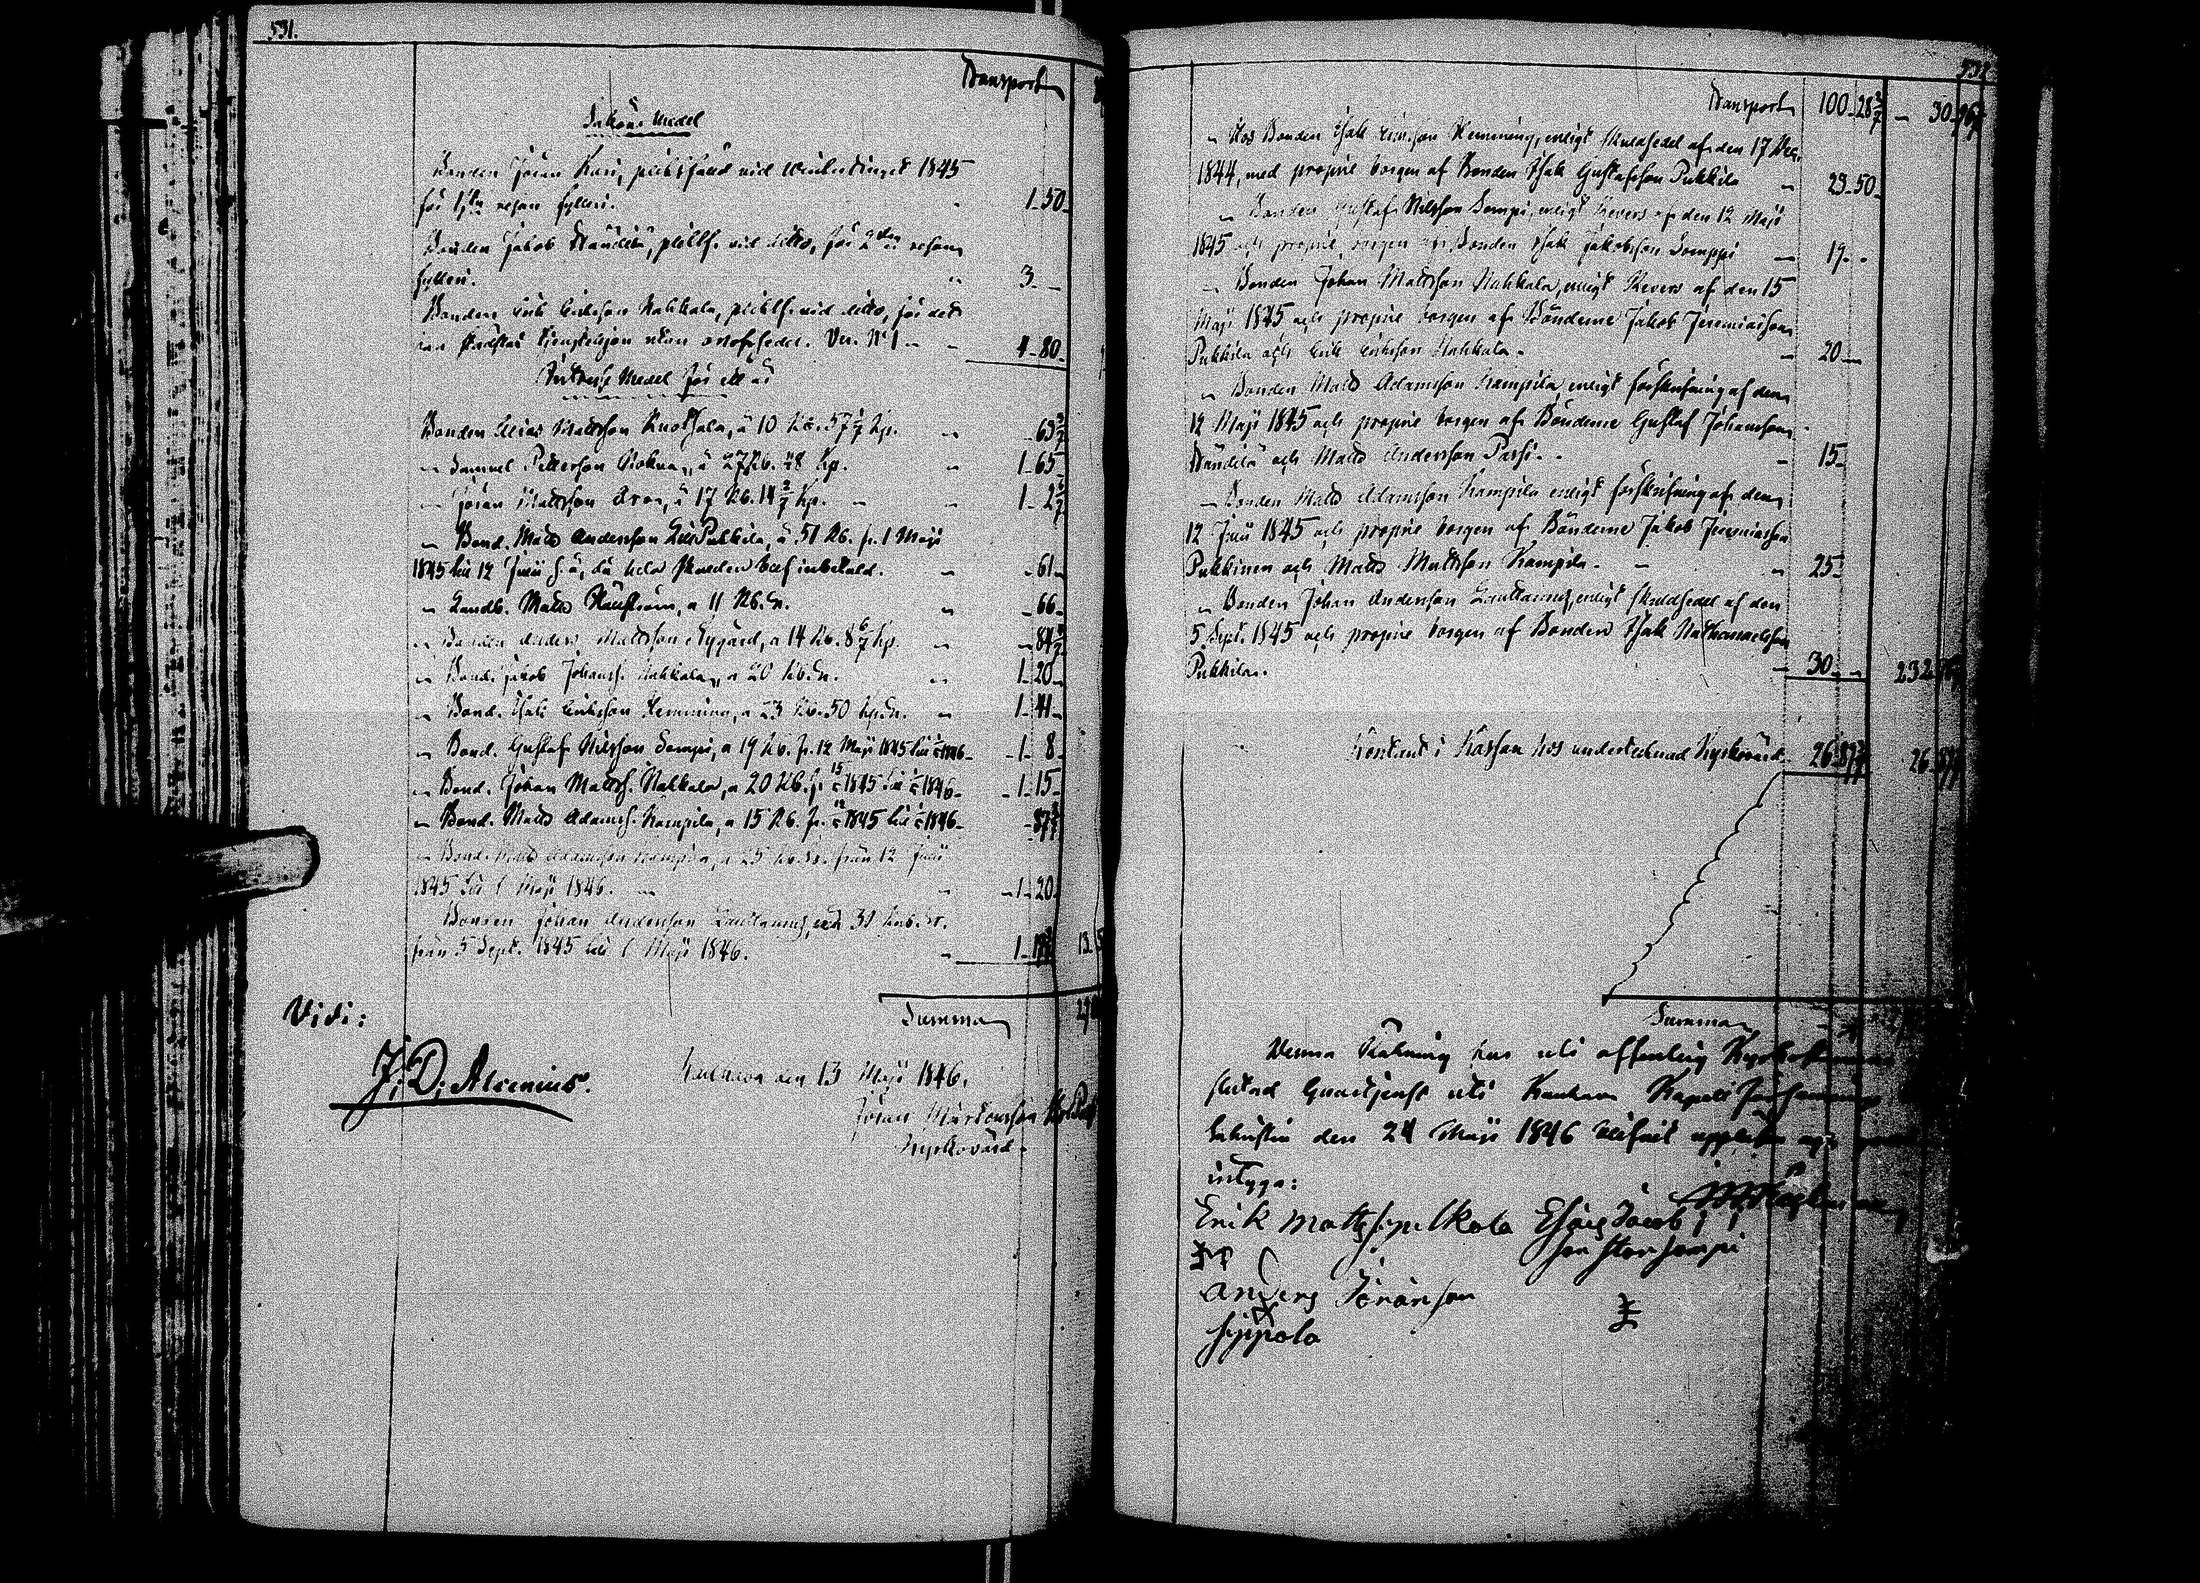 531.
Transport
Sakörs Medel
Bonden Jöran Kari, pliktfäld vid Wintertinget 1845
för 1sta resan fylleri. 1 50
Bonden Jakob Ständilä, pliktf. vid ditto, för 2dra resan
fylleri. 3
Bonden Erik Eriksson Nahkala, pliktf. vid ditto, för det
han städslat tjenstehjon utan orlofssedel. Ver. N:o 1 4 80
Intresse Medel för ett år
Bonden Elias Mattsson Knothala, à 10 Rb. 57 1/7 Kp. 63 3/7
Samuel Pettersson, à 27 Rb. 48 Kp. 1 65
Jöran Mattsson, à 17 Rb. 14 2/7 Kp. 1 2 6/7
Bond. Matts Andersson Lill Pukkila, à 51 Rb. fr. 1 Maji
1845 till 12 Junii s. å., då hela skulden blef inbetald. 61
Landb. Matts, a 11 Rb. Sr. 66
Bonden Anders Mattsson Nygård, a 14 Rb. 8 6/7 Kp. 84 4/7
Bond. Jakob Johanss. Nahkala, a 20 Rb. Sr. 1 20
Bond. Isak Eriksson Hemming, a 23 Rb. 50 Kp. Sr. 1 41
Bond. Gustaf Nilsson Sompi, a 19 Rb. fr. 12 Maji 1845 till 1/5 1846 1 8
Bond. Johan Matts. Nahkala, a 20 Rb. fr. 15/5 1845 till 1/5 1846 1 15
Bond. Matts Adamss. Kampila, a 15 Rb. fr. 12/5 1845 till 1/5 1846 87
Bond. Matts Adamsson Kampila, a 25 Rb. Sr. från 12 Junii
1845 till 1 Maji 1846. 1 20
Bonden Johan Andersson Lauttamus, 30 Rub. Sr.
från 5 Sept. 1845 till 1 Maji 1846. 1
Summa
Vidi:
J: D: Alcenius.
Kauhava den 13 Maji 1846.
Jöran Mårtensson
Kyrkovärd.
532
Transport 100 28 4/7 30
Hos Bonden Isak Eriksson Hemming, enligt skuldsedel af den 17 Dec.
1844, med proprie borgen af Bonden Isak Gustafsson Pukkila 23 50
Bonden Gustaf Nilsson Sompi, enligt Revers af den 12 Maji
1845 och proprie borgen af Bonden Isak Jakobsson Somppi 19
Bonden Johan Mattsson Nahkala, enligt Revers af den 15
Maji 1845 och proprie borgen af Bönderne Jakob Jeremiaisson
Pukkila och Erik Eriksson Nahkala. 20
Bonden Matts Adamsson Kampila, enligt förskrifning af den
12 Maji 1845 och proprie borgen af Bönderne Gustaf Johansson
Ständilä och Matts Andersson Passi. 15
Bonden Matts Adamsson Kampila enligt förskrifning af den
12 Junii 1845 och proprie borgen af Bönderne Jakob Jeremiasson
Pukkinen och Matts Mattsson Kampila. 25
Bonden Johan Andersson Lauttamus, enligt skuldsedel af den
5 Sept. 1845 och proprie borgen af Bonden Isak Nathanaelsson
Pukkila. 30 232
Kontant i Kassan hos undertecknad Kyrkovärd 26 87 26
Summa
Denna Räkning har uti offentlig
slutad Gudstjenst uti Kauhava Kapell Församlings
den 24 Maji 1846 blifvit uppläst och
intyga:
Erik Mattsson Elkola Esaias Jacob
son storsompi
Anders Jöransson
sippola